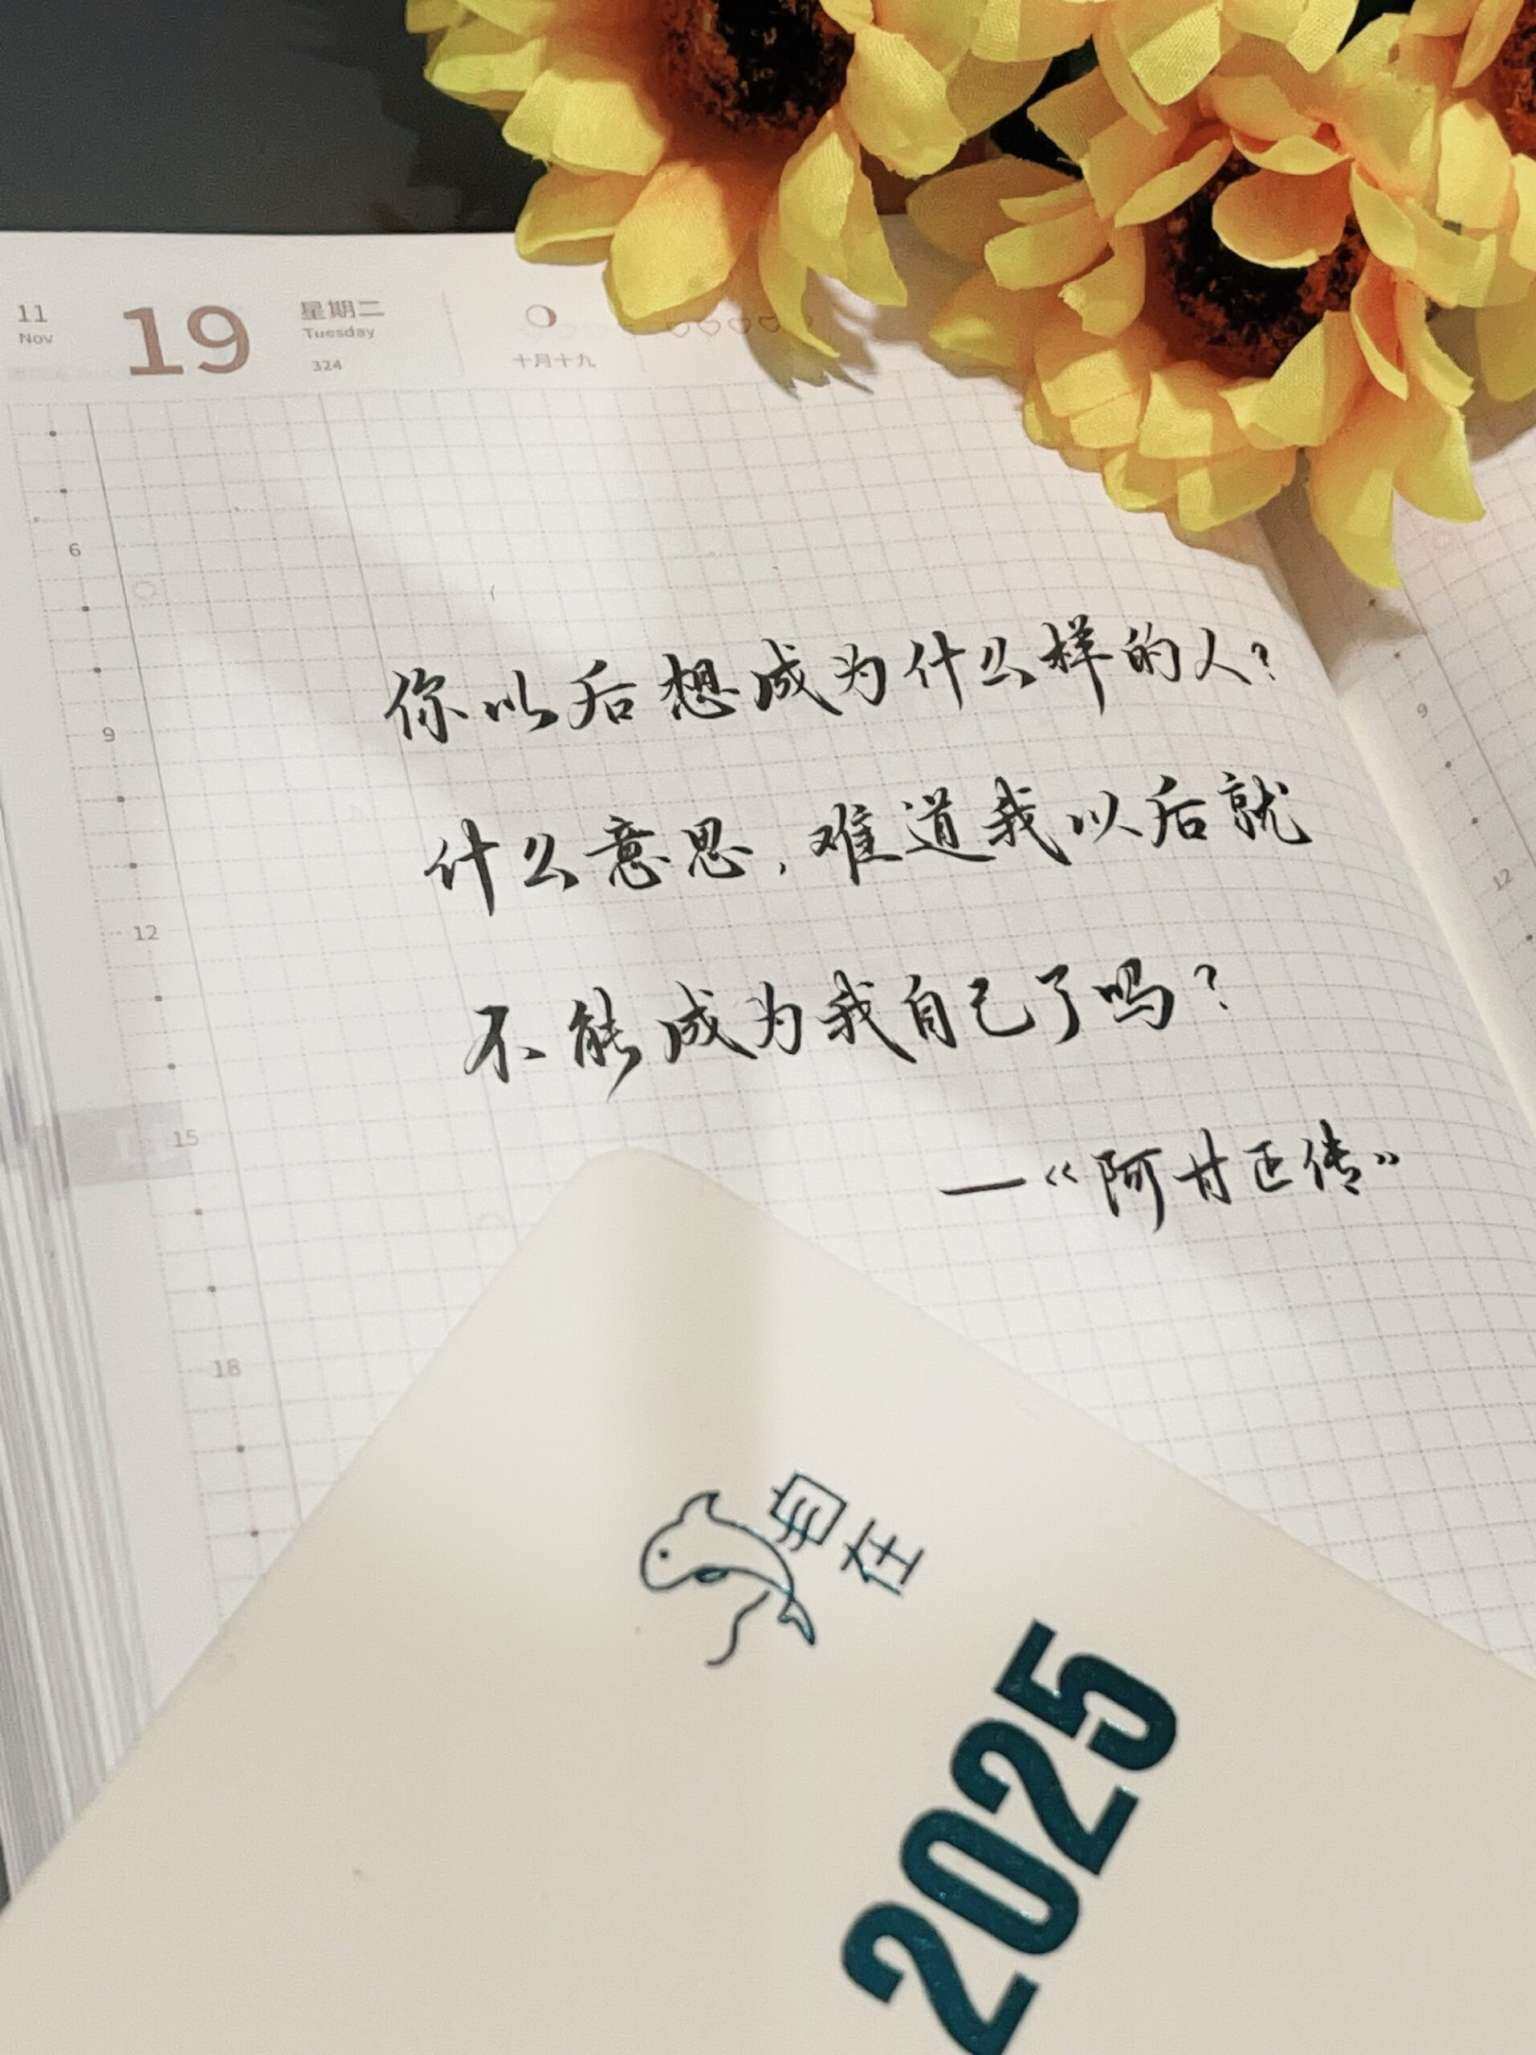 11
Nov
19
星期二
Tuesday
324
十月十九
6
9
12
15
18
9
12
你以后想成为什么样的人?
什么意思,难道我以后就
不能成为我自己了吗?
—《阿甘正传》
自在
2025